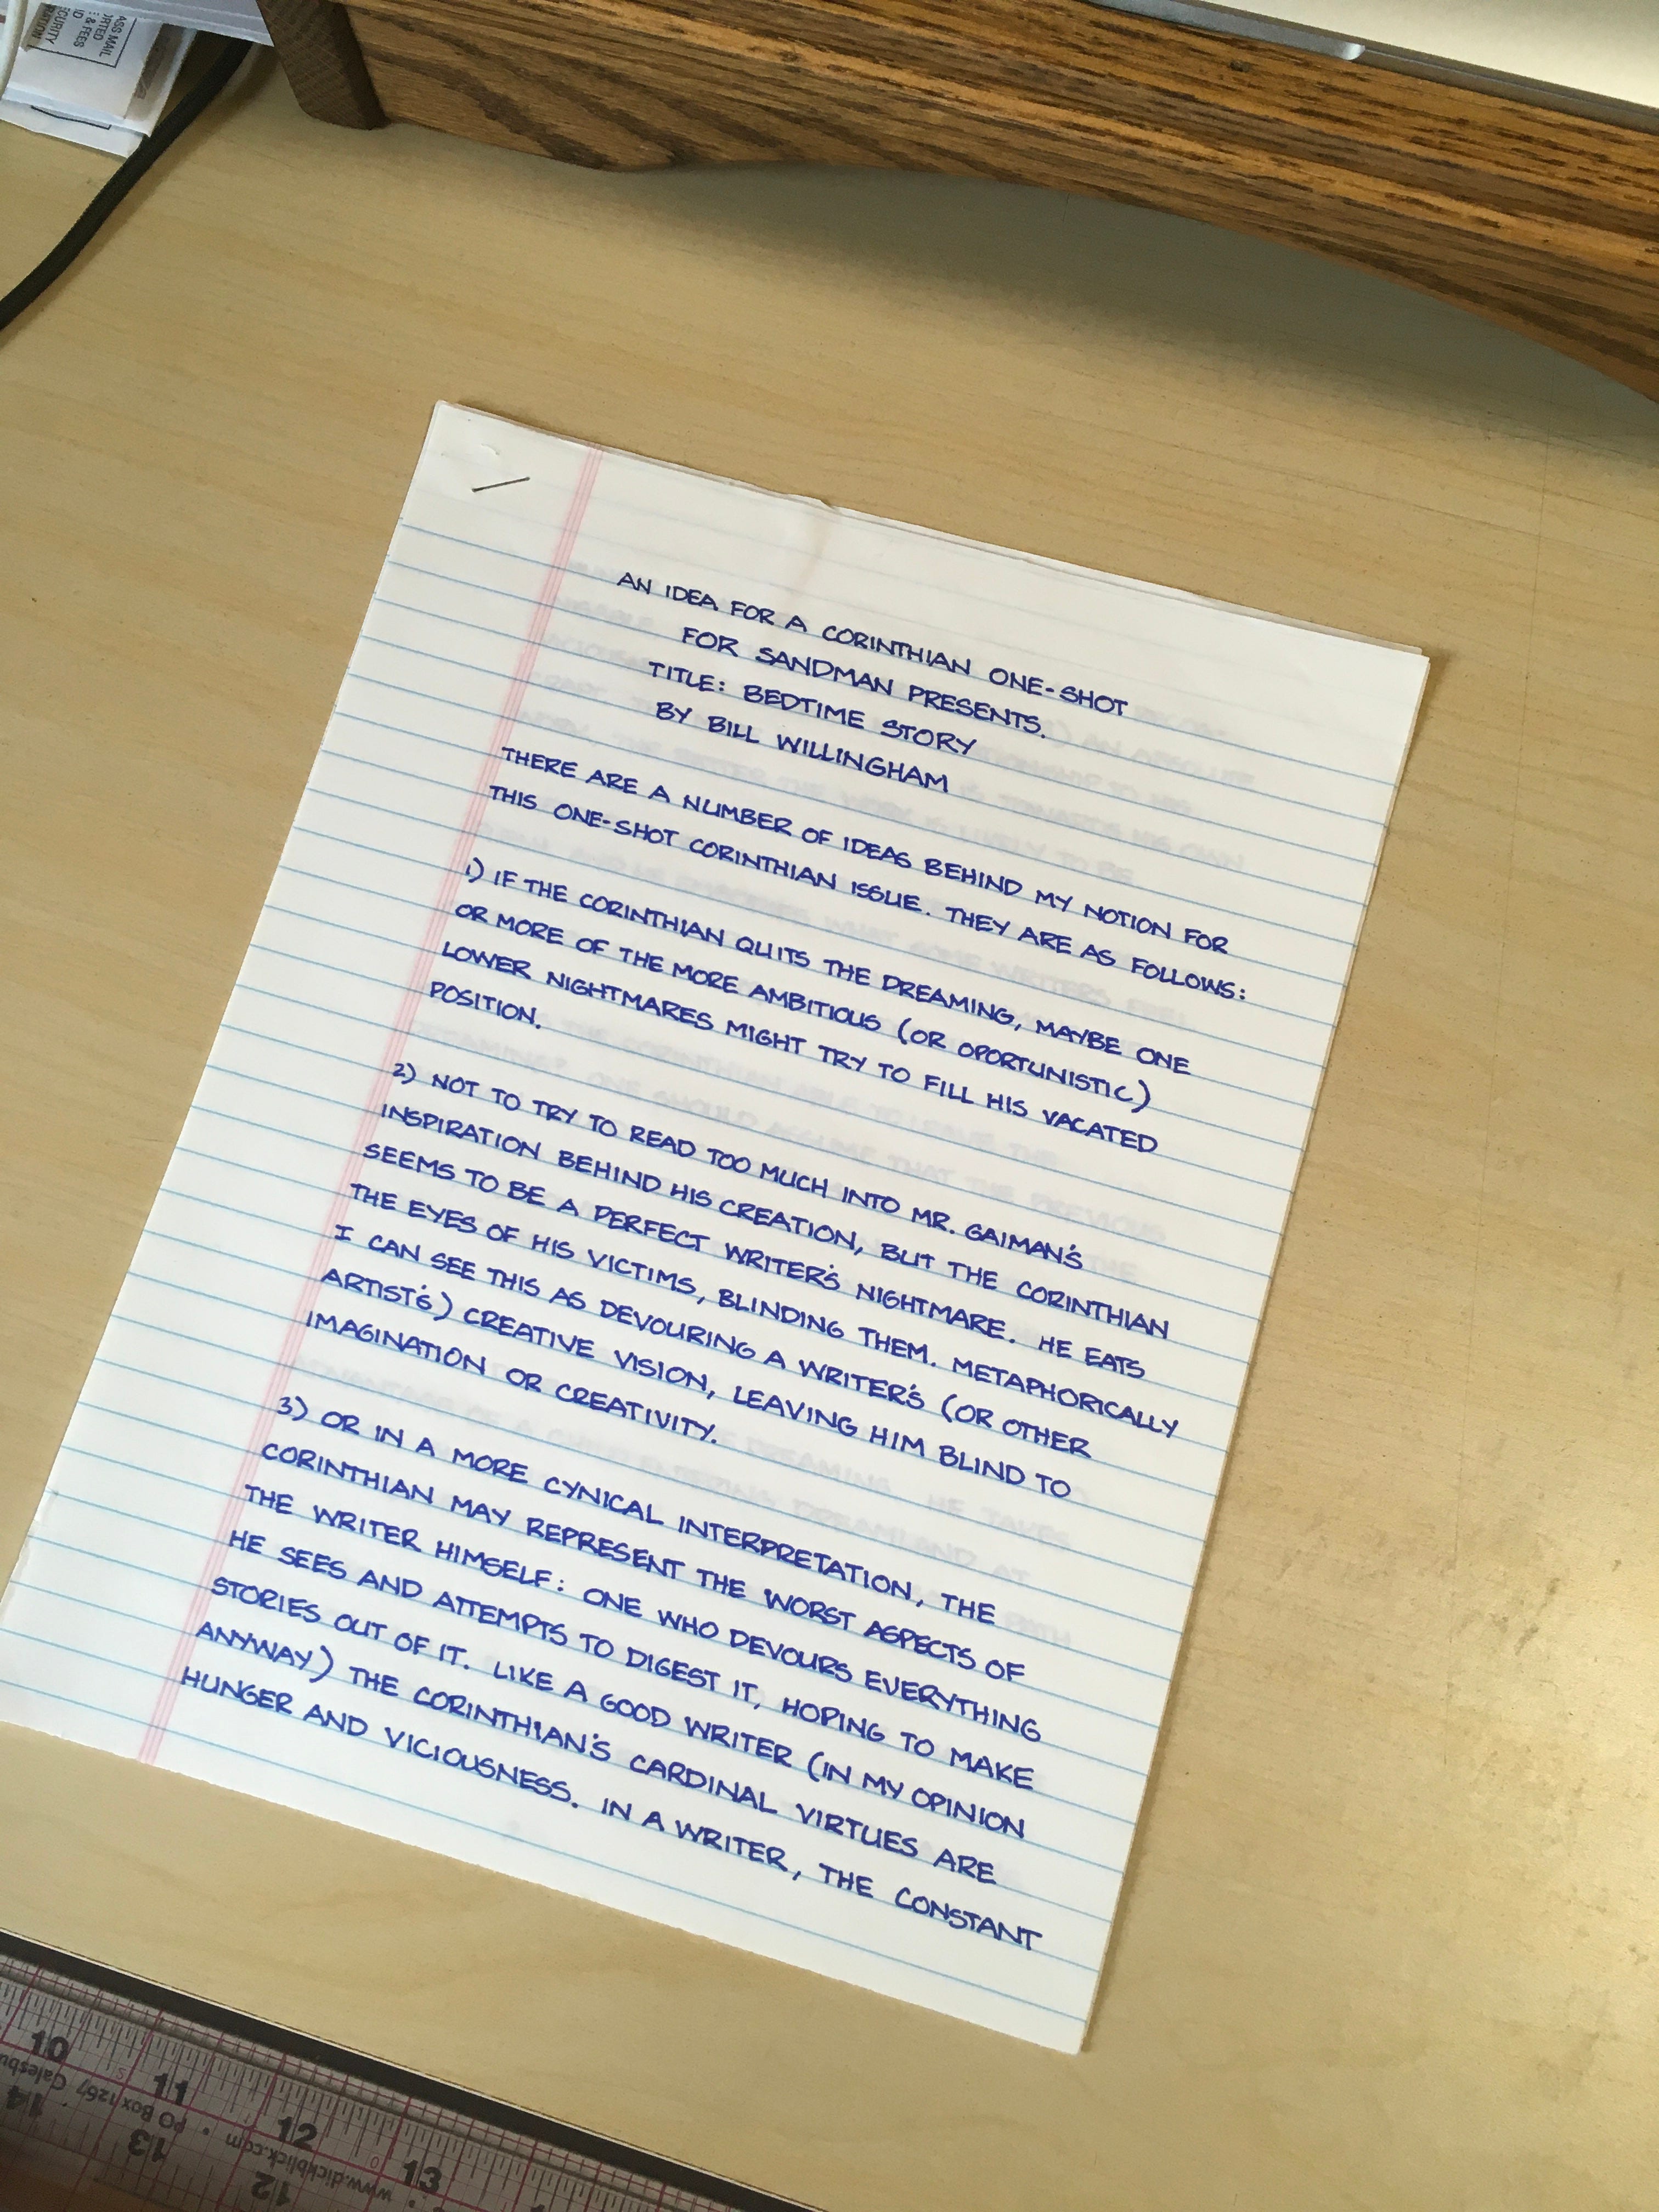 ASS MAIL
ORTED
E & FEES
ID
CURITY
RATION
AN IDEA FOR A CORINTHIAN ONE-SHOT
FOR SANDMAN PRESENTS.
TITLE: BEDTIME STORY
BY BILL WILLINGHAM
THERE ARE A NUMBER OF IDEAS BEHIND MY NOTION FOR
THIS ONE-SHOT CORINTHIAN ISSUE. THEY ARE AS FOLLOWS:
1) IF THE CORINTHIAN QUITS THE DREAMING, MAYBE ONE
OR MORE OF THE MORE AMBITIOUS (OR OPORTUNISTIC)
LOWER NIGHTMARES MIGHT TRY TO FILL HIS VACATED
POSITION.
2) NOT TO TRY TO READ TOO MUCH INTO MR. GAIMAN'S
INSPIRATION BEHIND HIS CREATION, BUT THE CORINTHIAN
SEEMS TO BE A PERFECT WRITER'S NIGHTMARE. HE EATS
THE EYES OF HIS VICTIMS, BLINDING THEM. METAPHORICALLY
I CAN SEE THIS AS DEVOURING A WRITER'S (OR OTHER
ARTIST'S) CREATIVE VISION, LEAVING HIM BLIND TO
IMAGINATION OR CREATIVITY.
3) OR IN A MORE CYNICAL INTERPRETATION, THE
CORINTHIAN MAY REPRESENT THE WORST ASPECTS OF
THE WRITER HIMSELF: ONE WHO DEVOURS EVERYTHING
HE SEES AND ATTEMPTS TO DIGEST IT, HOPING TO MAKE
STORIES OUT OF IT. LIKE A GOOD WRITER (IN MY OPINION
ANYWAY) THE CORINTHIAN'S CARDINAL VIRTUES ARE
HUNGER AND VICIOUSNESS. IN A WRITER, THE CONSTANT
10 11 12 13
www.dickblick.com • PO Box 1267 Galesbu
12 13 14